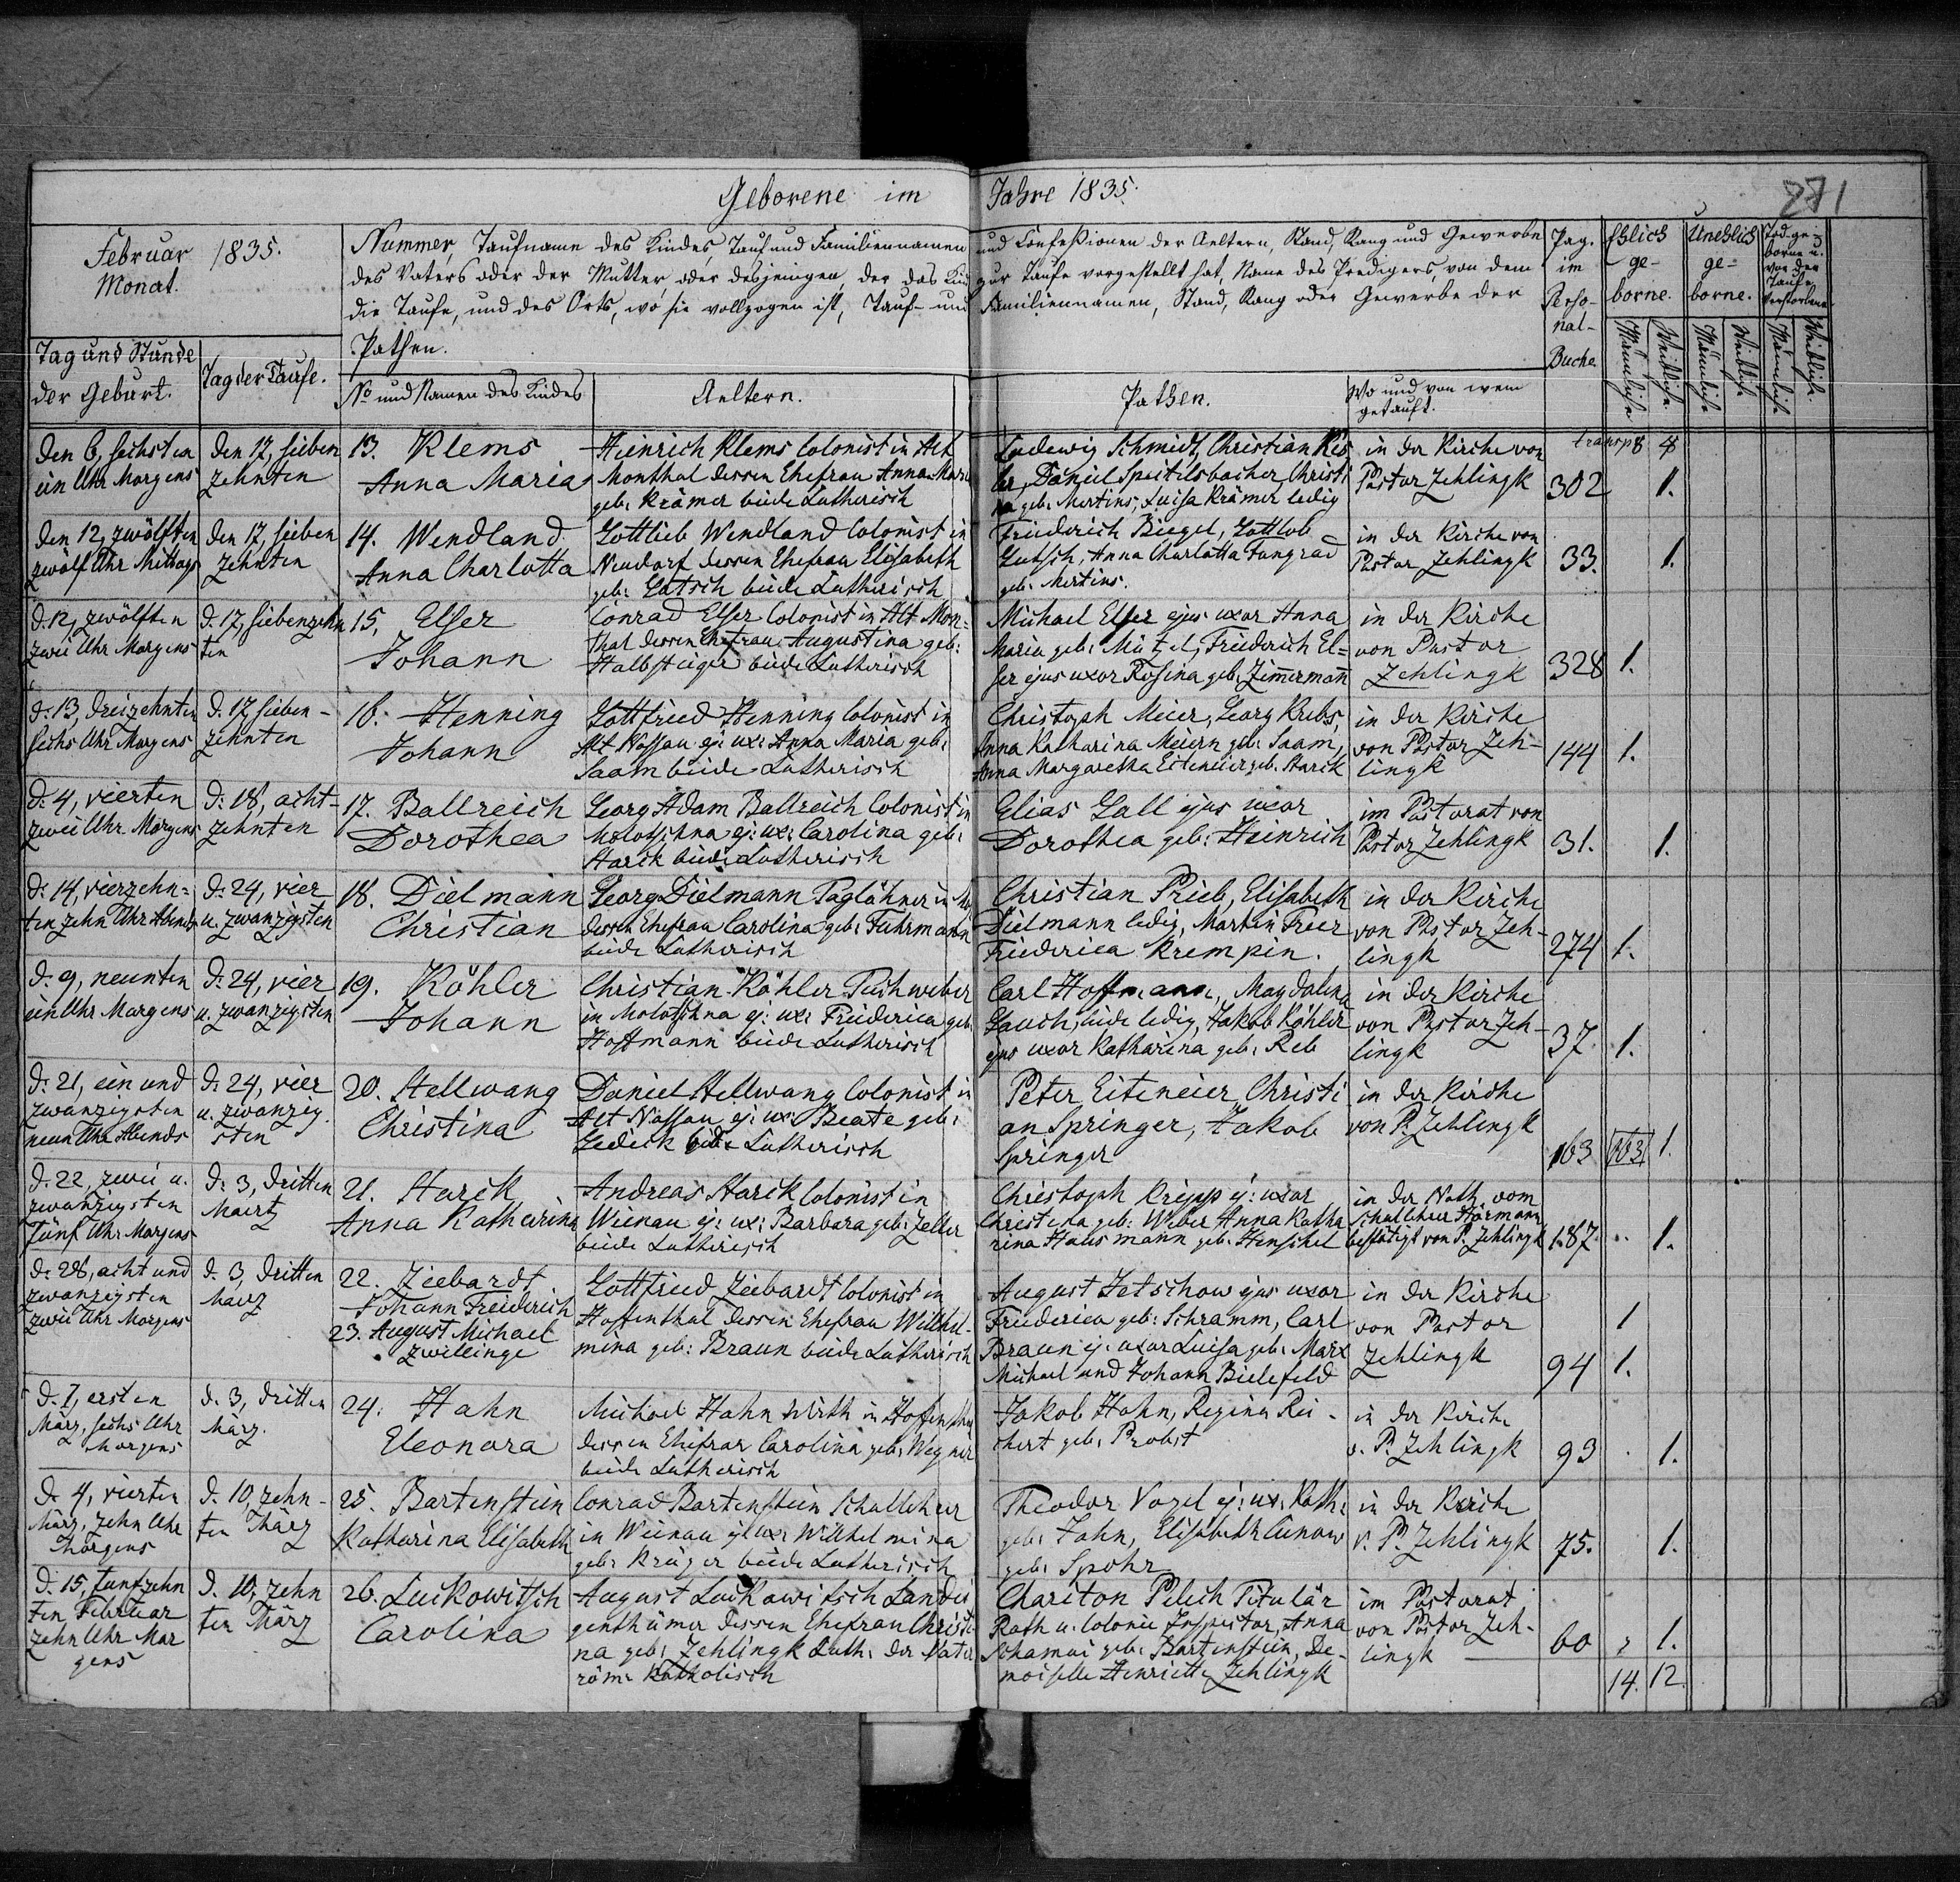 Geborene im Jahre 1835.
271
Februar 1835.
Monat.
Nummer, Taufname des Kindes, Tauf und Familiennamen und Confeßionen der Aeltern, Stand, Rang und Gewerbe
des Vaters oder der Mutter, oder desjenigen, der das Kind zur Taufe vorgestellt hat, Name des Predigers, von dem
die Taufe, und des Orts, wo sie vollzogen ist, Tauf- und Familiennamen, Stand, Rang oder Gewerbe der
Pathen.
Pag.
im
Perso-
nal-
Buche.
Ehlich
ge-
borne.
Unehlich
ge-
borne.
Tod.ge-
borne u.
vor der
Taufe
Verstorbene
Männliche
Weibliche
Männliche
Weibliche
Männliche
Weibliche
Tag und Stunde
der Geburt.
Tag der Taufe.
No und Namen des Kindes
Aeltern.
Pathen.
Wo und von wem
getauft.
transp 8 4
den 6, sechsten
ein Uhr Morgens
den 17, sieben
zehnten
13. Klems
Anna Maria
Heinrich Klems Colonist in Alt
Monthal dessen Ehefrau Anna Maria
geb. Krämer beide Lutherisch
Ludewig Schmidt, Christian Kis
ler, Daniel Speitelsbacher, Christi
na geb. Mertins, Luisa Krämer ledig
in der Kirche von
Pastor Zehlingk
302
1.
den 12, zwölften
zwölf Uhr Mittags
den 17, sieben
zehnten
14. Wendland
Anna Charlotta
Gottlieb Wendland Colonist in
Neudorf dessen Ehefrau Elisabeth
geb. Gutsch beide Lutherisch
Friederich Biegel, Gottlob
Gutsch, Anna Charlotta
geb. Mertins.
in der Kirche von
Pastor Zehlingk
33.
1.
d. 12, zwölften
zwei Uhr Morgens
d. 17, siebenzehn
ten
15, Elser
Johann
Conrad Elser Colonist in Alt Mon-
thal dessen Ehefrau Augustina geb:
Halbsteiger beide Lutherisch
Michael Elser ejus uxor Anna
Maria geb. Mützel, Friederich El-
ser ejus uxor Rosina geb. Zimmermann
in der Kirche
von Pastor
Zehlingk
328
1.
d. 13, dreizehnten
sechs Uhr Morgens
d. 17, sieben-
zehnten
16. Henning
Johann
Gottfried Henning Colonist in
Alt Nassau ej: ux: Anna Maria geb:
Saam beide Lutherisch
Christoph Meier, Georg Krebs,
Anna Katharina Meiern geb. Saam,
Anna Margaretha Eitemeier geb. Starck
in der Kirche
von Pastor Zeh-
lingk
144
1.
d. 4, vierten
zwei Uhr Morgens
d: 18, acht-
zehnten
17. Ballreich
Dorothea
Georg Adam Ballreich Colonist in
Molotschna ej: ux: Carolina geb:
Starck beide Lutherisch
Elias Gall ejus uxor
Dorothea geb: Heinrich
im Pastorat von
Pastor Zehlingk
31.
1.
d: 14, vierzehn-
ten, zehn Uhr Abends
d: 24, vier
u. zwanzigsten
18. Dielmann
Christian
Georg Dielmann Taglöhner in Mo
dessen Ehefrau Carolina geb. Fuhrmann
beide Lutherisch
Christian Prieb, Elisabeth
Dielmann ledig, Martin Freier
Friederica Krempin.
in der Kirche
von Pastor Zeh-
lingk
274
1.
d: 9, neunten
ein Uhr Morgens
d: 24, vier
u. zwanzigsten
19. Köhler
Johann
Christian Köhler Tuchweber
in Molotschna ej: ux: Friederica geb.
Hoffmann beide Lutherisch
Carl Hoffmann, Magdalena
Lauch, beide ledig, Jakob Köhler
ejus uxor Katharina geb. Reb
in der Kirche
von Pastor Zeh-
lingk
37
1.
d: 21, ein und
zwanzigsten
neun Uhr Abends
d: 24, vier
u. zwanzig.
sten
20. Hellwang
Christina
Daniel Hellwang Colonist in
Alt Nassau ej: ux: Beate geb:
Gedeck beide Lutherisch
Peter Eitemeier, Christi
an Springer, Jakob
Springer
in der Kirche
von P. Zehlingk
163
163
1.
d. 22, zwei u.
zwanzigsten
fünf Uhr Morgens
d: 3, dritten
Maertz
21. Starck
Anna Katharina
Andreas Starck Colonist in
Wienau ej: ux: Barbara geb: Zeller
beide Lutherisch
Christoph Kripp ej: uxor
Christina geb: Weber Anna Katha
rina Hausmann geb. Henschel
in der Noth, vom
Schullehrer Hörmann
bestätigt von P. Zehlingk
187
1.
d: 28, acht und
zwanzigsten
zwei Uhr Morgens
d. 3, dritten
März
22. Ziebardt
Johann Freiderich
23. August Michael
Zwillinge
Gottfried Ziebardt Colonist in
Hoffenthal dessen Ehefrau Wilhel-
mina geb: Braun beide Lutherisch
August Jetschow ejus uxor
Friederica geb: Schramm, Carl
Braun ej: uxor Luisa geb. Marx
Michael und Johann Bielefeld
in der Kirche
von Pastor
Zehlingk
94
1
1.
d. 1, ersten
März, sechs Uhr
Morgens
d. 3, dritten
März.
24. Hahn
Eleonora
Michael Hahn Wirth in Hoffenthal
dessen Ehefrau Carolina geb. Wegner
beide Lutherisch
Jakob Hahn, Regina Rei-
chert geb. Probst
in der Kirche
v. P. Zehlingk
93
1.
d. 4, vierten
März, zehn Uhr
Morgens
d. 10, zehn-
ten März
25. Bartenstein
Katharina Elisabeth
Conrad Bartenstein Schullehrer
in Wienau ej: ux: Wilhelmina
geb. Krüger beide Lutherisch
Theodor Vogel ej: ux: Kath:
geb. Jahn, Elisabeth Cunow
geb. Spohr
in der Kirche
v. P. Zehlingk
75.
1.
d. 15, funfzehn
ten Februar
zehn Uhr Mor
gens
d. 10, zehn
ten März
26. Luckowitsch
Carolina
August Luckowitsch Landei
genthümer dessen Ehefrau Christi
na geb. Zehlingk Luth. der Vater
röm: Katholisch
Chariton Pelech Titulär
Rath u. Colonie Inspector, Anna
Schamai geb. Bartenstein, De-
moiselle Henriette Zehlingk
im Pastorat
von Pastor Zeh-
lingk
60
1.
14. 12.